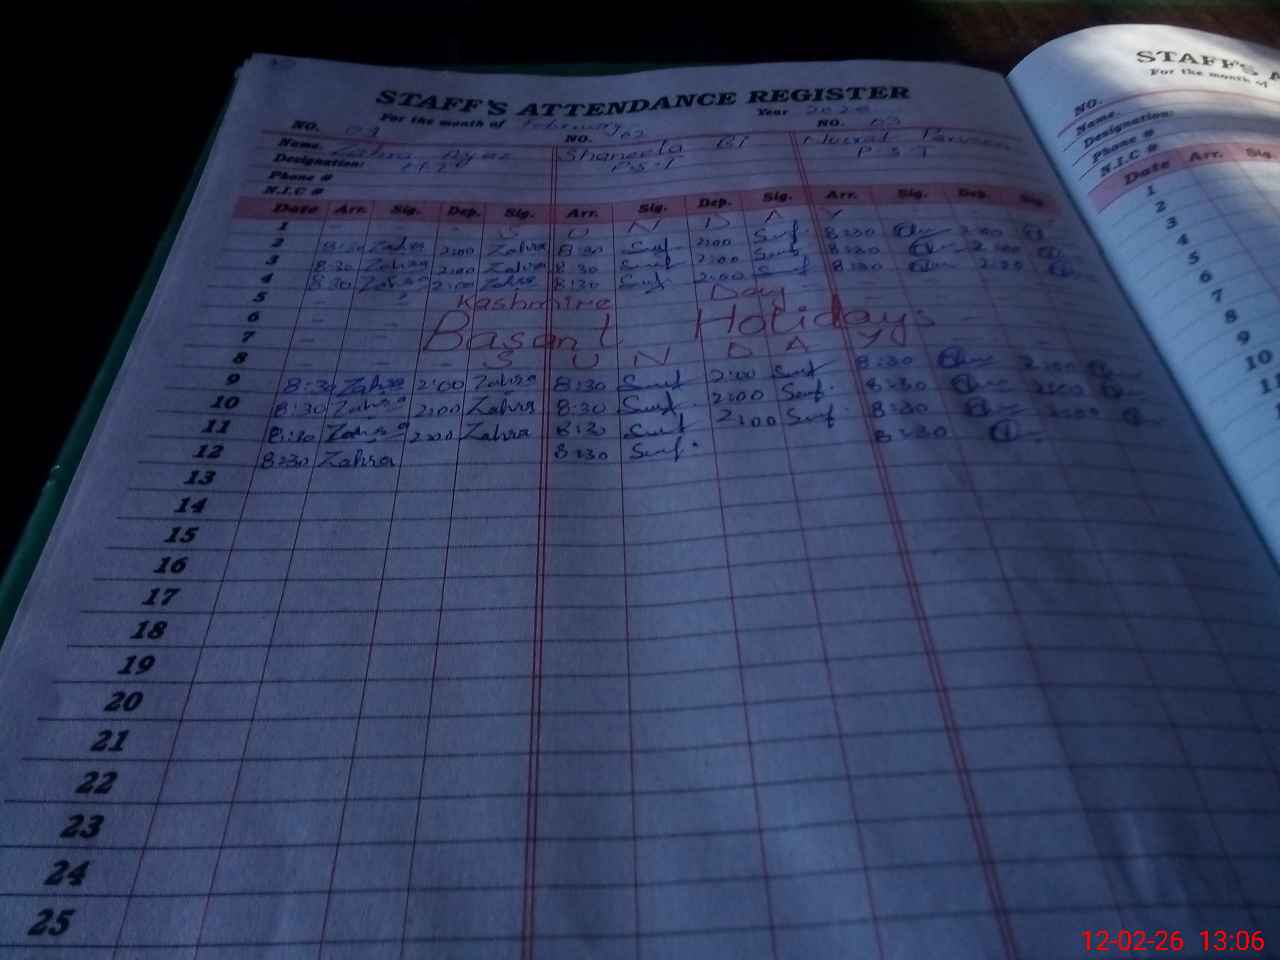 STAFF'S ATTENDANCE REGISTER
For the month of February Year
NO. NO. 02 NO. 03
Name. Shaneela Bi Nusrat Parveen
Designation: P.S.T P.S.T
Phone #
N.I.C #
Date Arr. Sig. Dep. Sig. Arr. Sig. Dep. Sig. Arr. Sig. Dep. Sig.
1 S U N D A Y
2 8:30 Zahra 2:00 Zahra 8:30 2:00 8:30 2:00
3 8:30 Zahra 2:00 Zahra 8:30 2:00 8:30 2:00
4 8:30 Zahra 2:00 Zahra 8:30 2:00 8:30 2:00
5 Kashmire Day
6 Basant Holidays
7
8 S U N D A Y
9 8:30 Zahra 2:00 Zahra 8:30 2:00 8:30 2:00
10 8:30 Zahra 2:00 Zahra 8:30 2:00 8:30 2:00
11 8:30 Zahra 2:00 Zahra 8:30 2:00 8:30 2:00
12 8:30 Zahra 8:30 8:30
13
14
15
16
17
18
19
20
21
22
23
24
25
STAFF'S A
For the month of
NO.
Name.
Designation:
Phone #
N.I.C #
Date Arr. Sig.
1
2
3
4
5
6
7
8
9
10
11
12-02-26 13:06